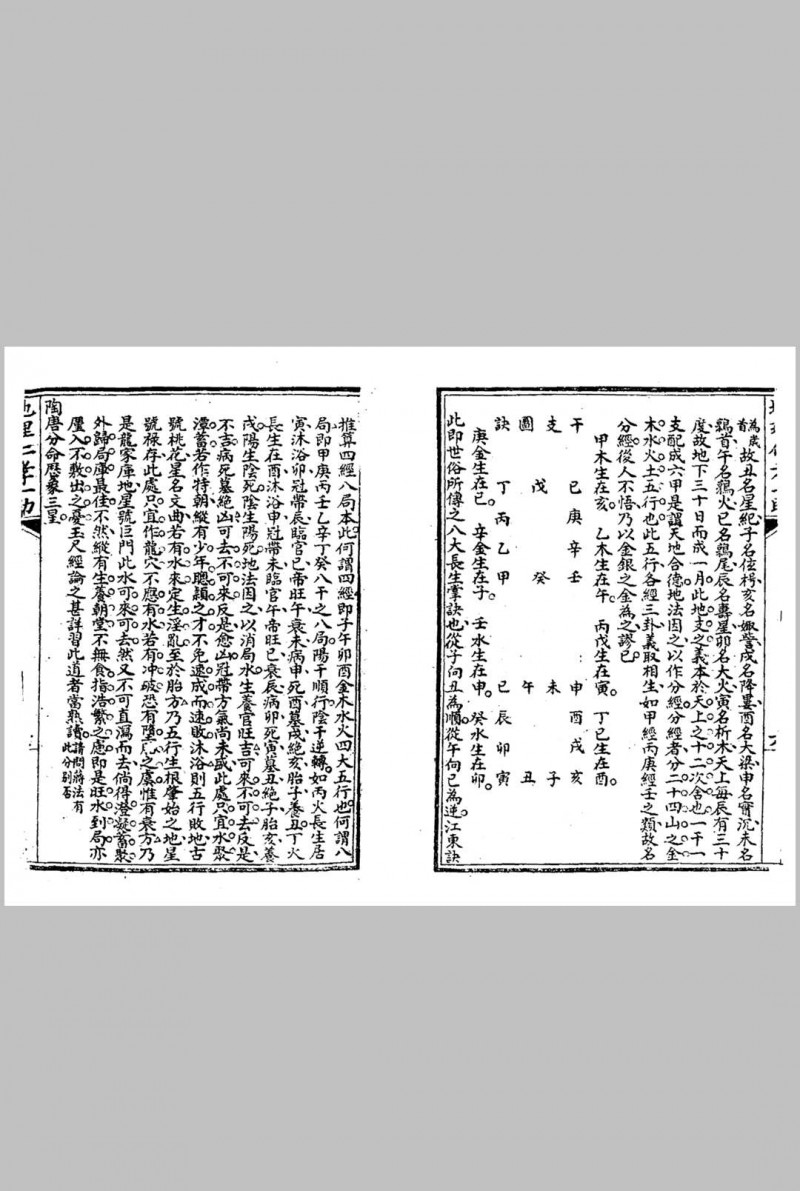 為歲首故丑名星紀子名玄枵亥名娵訾戌名降婁酉名大梁申名實沉未名
鶉首午名鶉火巳名鶉尾辰名壽星卯名大火寅名析木天上每辰有三十
度故地下三十日而成一月此地支之義本於天上之十二次舍也一干一
支配成六甲是謂天地合德地法因之以作分經分經者分二十四山之金
木水火土五行也此五行各經三卦義取相生如甲經丙庚經壬之類故名
分經後人不悟乃以金銀之金為之謬已
甲木生在亥 乙木生在午 丙戊生在寅 丁己生在酉
干 己庚辛壬 申酉戌亥
支 未 子
圖 戊 癸 午 丑
訣 丁丙乙甲 巳辰卯寅
庚金生在巳 辛金生在子 壬水生在申 癸水生在卯
此即世俗所傳之八大長生掌訣也從子向丑為順從午向巳為逆江東訣
推算四經八局本此何謂四經即子午卯酉金木水火四大五行也何謂八
局即甲庚丙壬乙辛丁癸八干之八局陽干順行陰干逆轉如丙火長生居
寅沐浴卯冠帶辰臨官巳帝旺午衰未病申死酉墓戌絕亥胎子養丑丁火
長生在酉沐浴申冠帶未臨官午帝旺巳衰辰病卯死寅墓丑絕子胎亥養
戌陽生陰死陰生陽死地法因之以消局水生養官旺吉可來不可去反是
不吉病死墓絕凶可去不可來反是愈凶冠帶方氣尚未盛此處只宜水聚
瀦蓄若作特朝縱有少年聰穎之才不免逸成而速敗沐浴則五行敗地古
號桃花星名文曲若有水來定生淫亂至於胎方乃五行生根肇始之地星
號祿存此處只宜作龍穴不應有水若有冲破恐有墮之虞惟有衰方乃
是龍家庫地星號巨門此水可來可去然又不可直瀉而去倘得澄凝蓄聚
外歸局庫最佳不然縱有生養朝堂不無食指浩繁之慮即是旺水到局亦
厪入不敷出之憂玉尺經論之甚詳習此道者當熟讀請問蔣法有此分別否
陶唐分命歷象三星
地理二孝一助